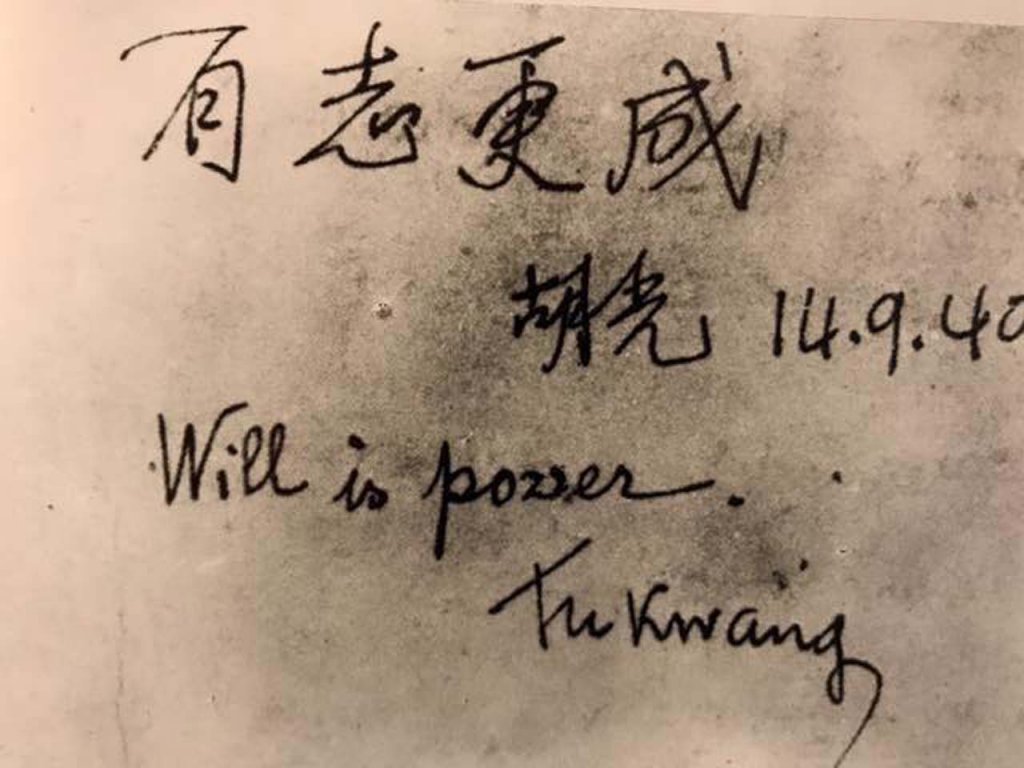 有志更成
胡光 14.9.40
Will is power.
Fu Kwang